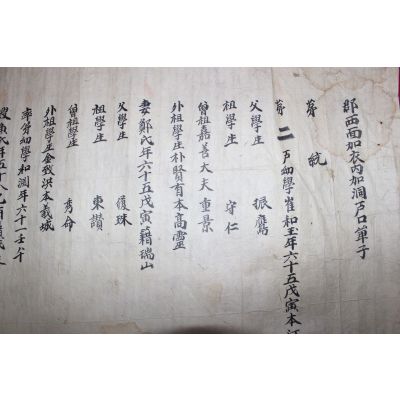 郡西面加衣內加洞戶口單子
苐 統
苐二戶幼學崔和玉年六十五戊寅本江
父學生 振鷹
祖學生 守仁
曾祖嘉善大夫重景
外祖學生朴賢有本高靈
妻鄭氏年六十五戊寅籍瑞山
父學生 復珠
祖學生 東讃
曾祖學生 秀命
外祖學生金致洪本義城
率弟幼學和 年六十一壬午
嫂 氏年五十八